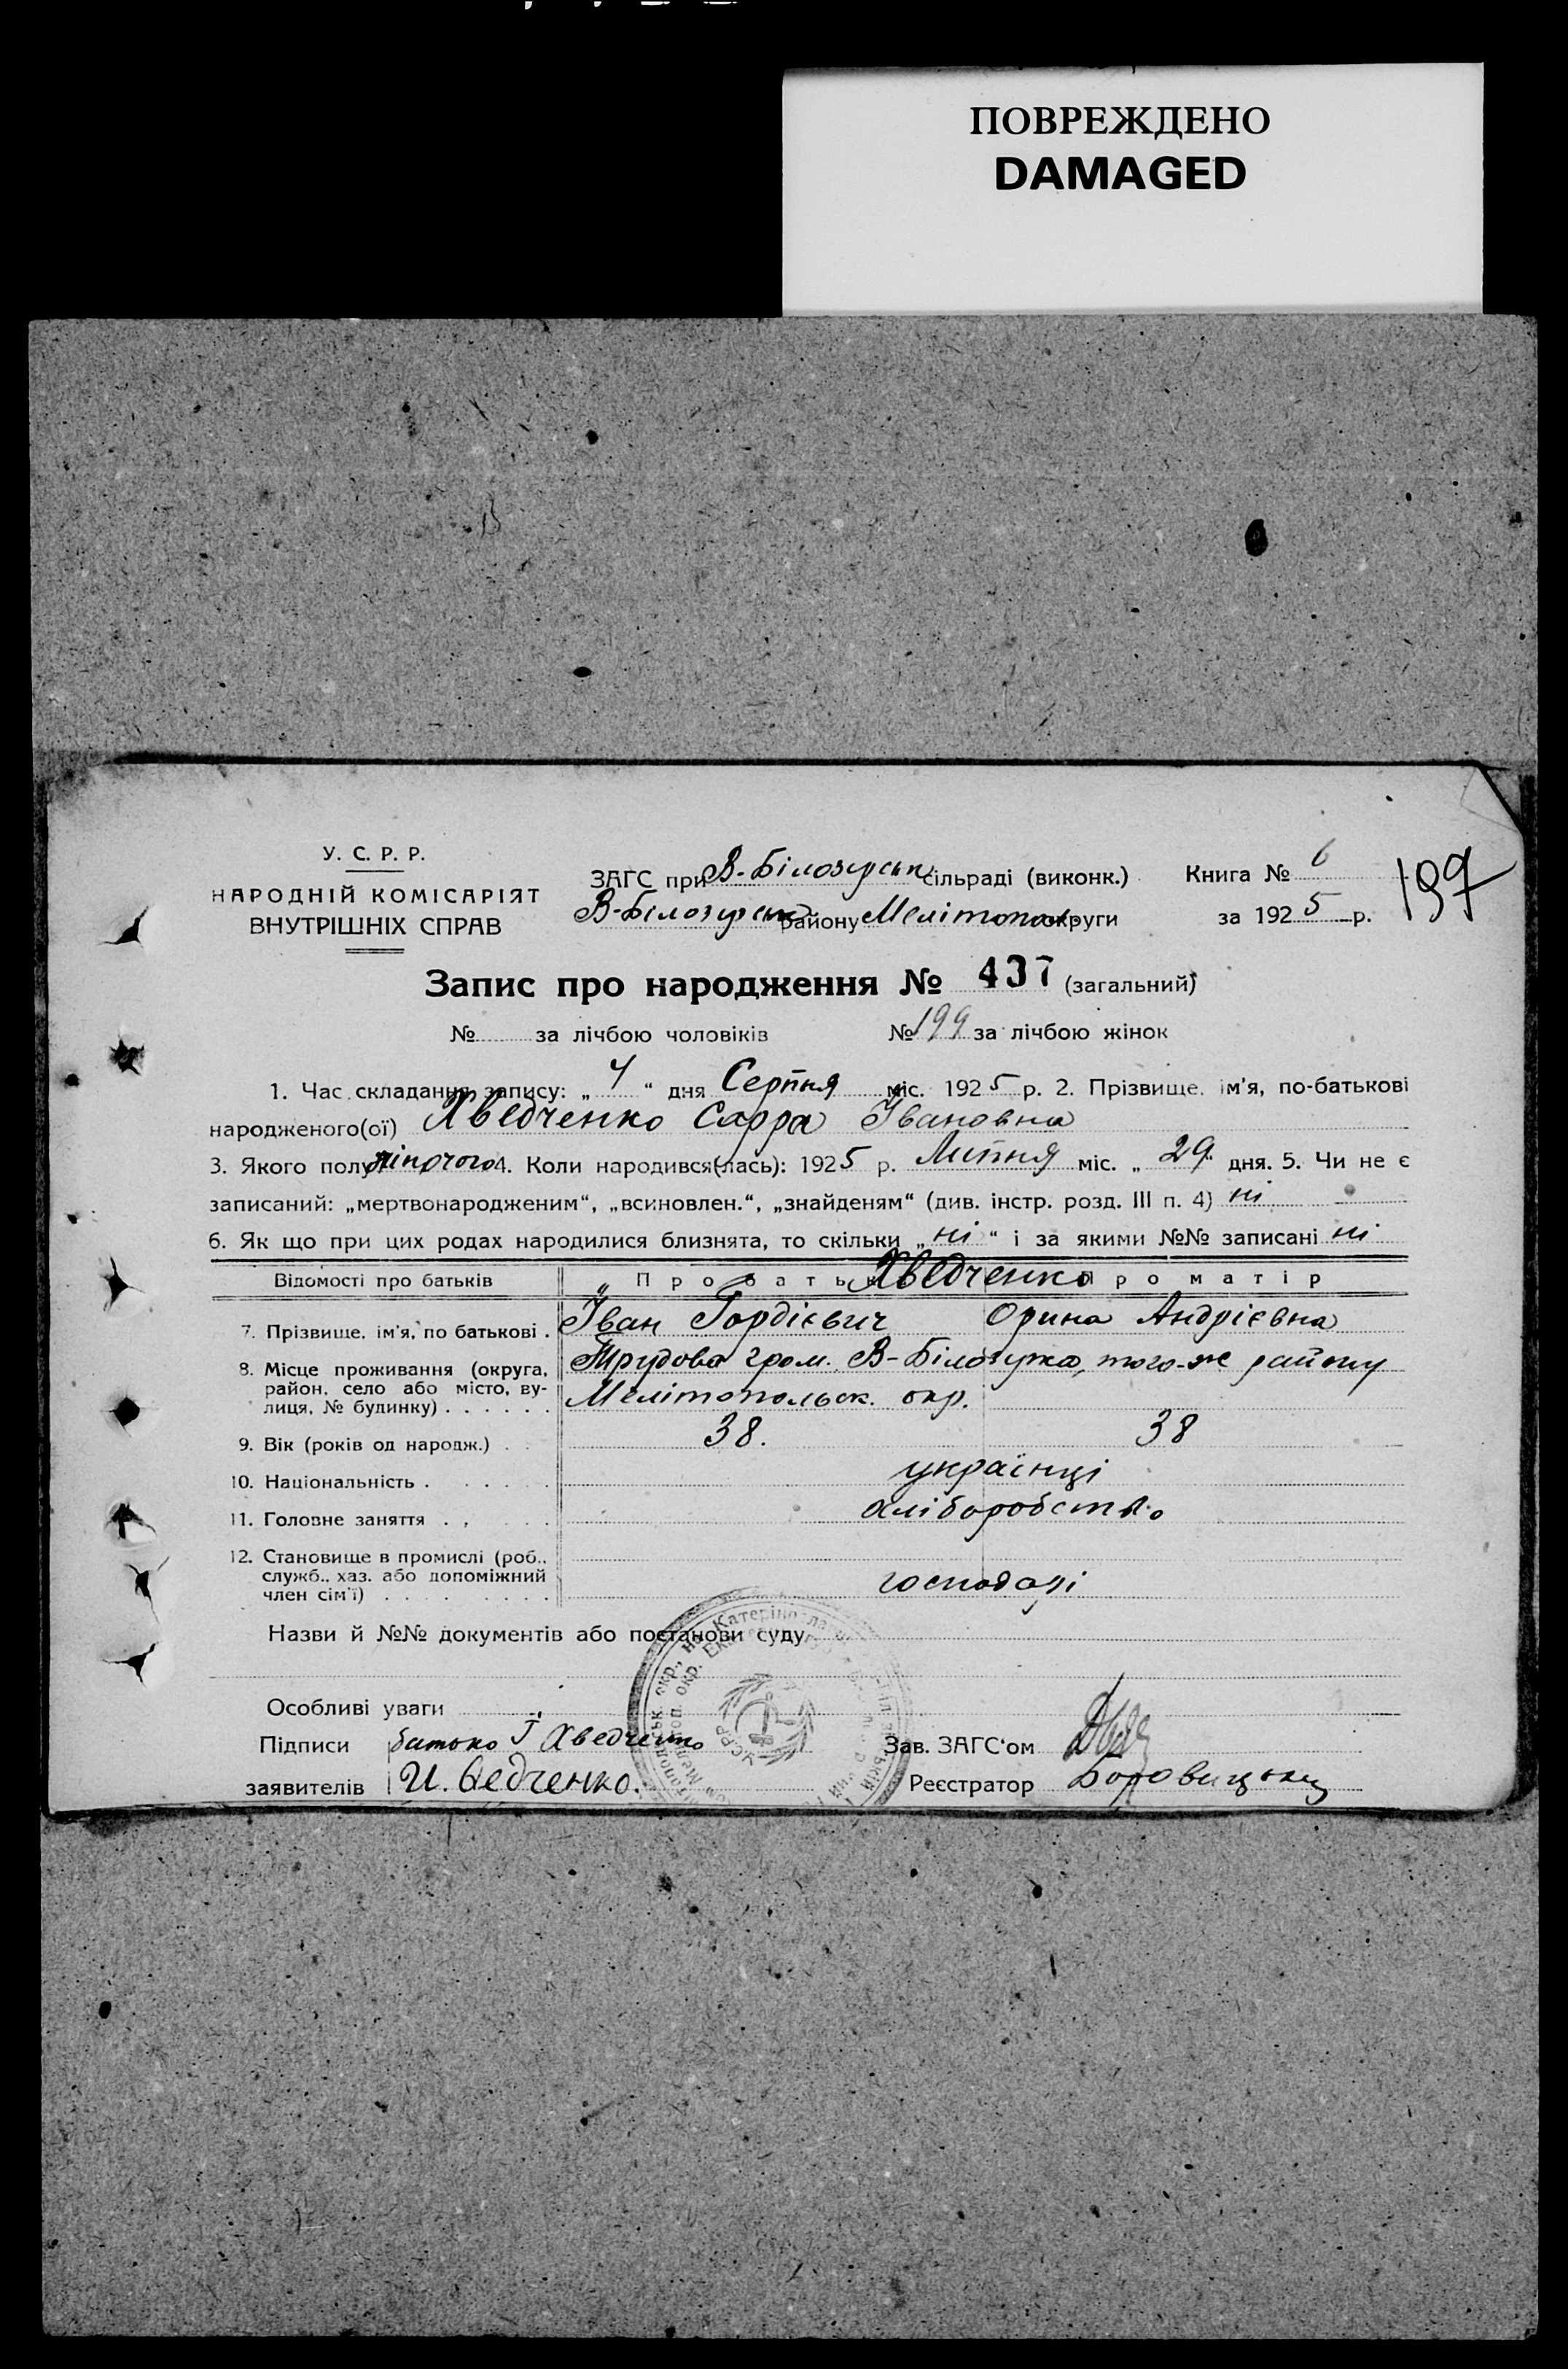 ПОВРЕЖДЕНО
DAMAGED
У. С. Р. Р.
НАРОДНІЙ КОМІСАРІЯТ
ВНУТРІШНІХ СПРАВ
ЗАГС при В-Білозурськ сільраді (виконк.)
В-Білозурськ району Мелітопол округи
Книга № 6
за 1925 р.
197
Запис про народження № 437 (загальний)
№ за лічбою чоловіків № 199 за лічбою жінок
1. Час складання запису: „ 4 “ дня Серпня міс. 1925 р. 2. Прізвище, ім'я, по-батькові
народженого(ої) Хведченко Сарра Івановна
3. Якого полу жіночого 4. Коли народився(лась): 1925 р. Липня міс. „ 29 “ дня. 5. Чи не є
записаний: „мертвонародженим“, „всиновлен.“, „знайденям“ (див. інстр. розд. III п. 4) ні
6. Як що при цих родах народилися близнята, то скільки „ ні “ і за якими №№ записані ні
Відомості про батьків Про батьк Хведченко Про матір
7. Прізвище, ім'я, по батькові . Іван Гордієвич Орина Андрієвна
8. Місце проживання (округа, район, село або місто, вулиця, № будинку) . . . . . . Трудова гром. В-Білозурка, того-же району
Мелітопольск. окр.
9. Вік (років од народж.) . . 38. 38
10. Національність . . . . . українці
11. Головне заняття . , . . . хліборобство
12. Становище в промислі (роб., служб., хаз. або допоміжний член сім'ї) . . . . . . . . . господарі
Назви й №№ документів або постанови суду
Особливі уваги
Підписи батько І Хведченко
заявителів И. Ведченко.
Зав. ЗАГС'ом
Реєстратор Боровицький